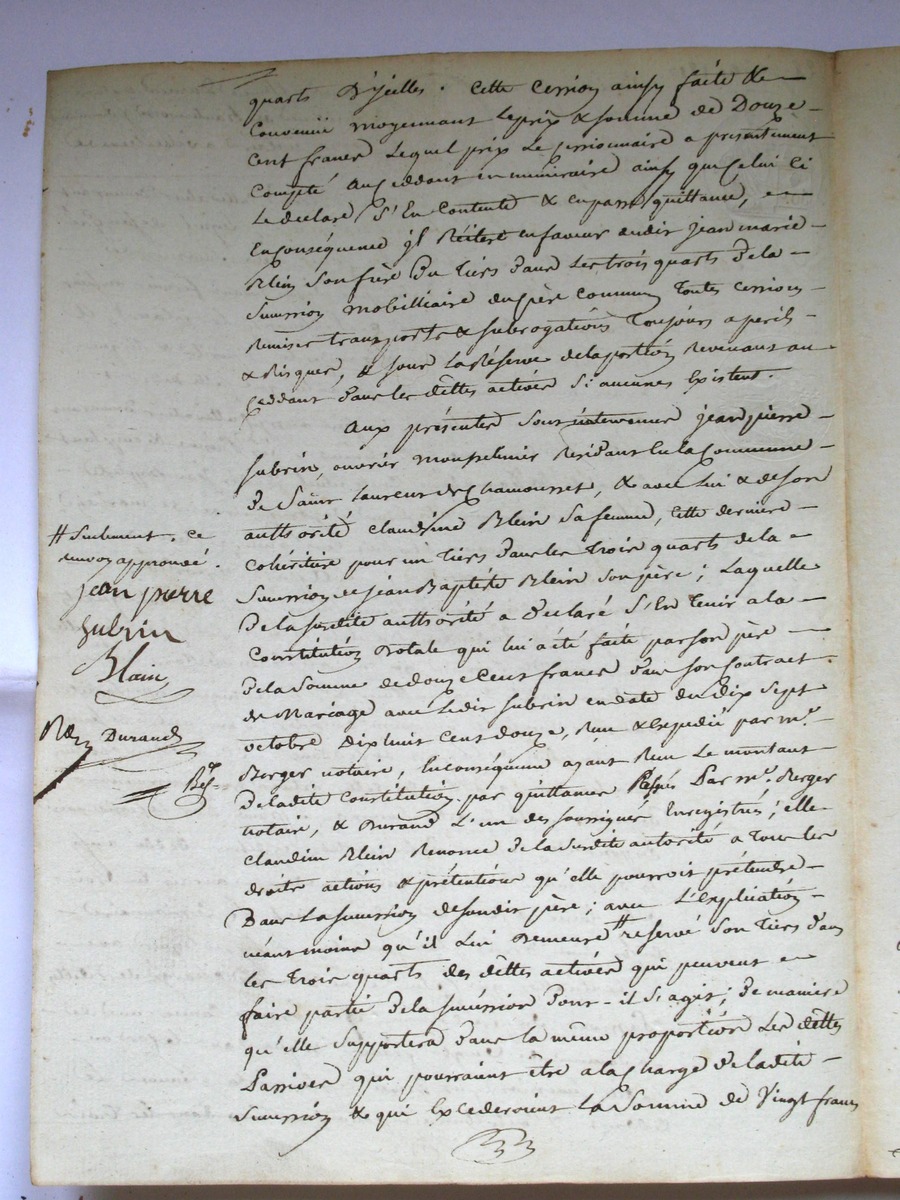 quarts D'jcelles. Cette Cession ainsy faite &
Convenüe moyennant Leprix & somme de Douze
Cent francs Lequel prix Le cessionnaire a presentement
Compté au Ceddant en numéraire ainsy que Celui Ci
Le declare S'En Contente & en passe quittance, en
Conséquence jl Réitere en faveur dudit jean marie
Blein son frère Du tiers Dans Les trois quarts De la
Succession mobilliaire du père Commun Toutes Cessions
Remises transports & subrogations Toujours a perils
& Risques, & sous La Réserve de la portion Revenant au
Ceddant Dans les dêttes activès Si aucunes Existent.
Aux présentes Sont intervenus jean pierre
Subrin, ouvrier Residant en la Commune
De Saint Laurent de Chamousset, & avec Lui & de son
authorité Claudine Blein Sa femme, Cette derniere
Cohéritiere pour un Tiers Dans les trois quarts de la
Succession de jean Baptiste Blein Son père; Laquelle
De la susdite authorité a Déclaré S'En Tenir a la
Constitution Dotale qui lui a été faite par son père
De la Somme de douze Cent francs Dans son Contract
De Mariage avec Ledit Subrin en date du Dix Sept
octobre Dix huit Cent douze, Reçu & Expedié par me.
Berger notaire, En conséquence ayant Reçu Le montant
De ladite Constitution par quittances Par me. Berger
notaire, & Durand L'un des soussignés Enregistrés; elle
Claudine Blein Renonce De la susdite autorité a Tous les
droits actions & prétentions qu'elle pourroit prétendre
Dans La succession de sondit père; avec L'Explication
néant moins qu'il Lui Demeure # reservé Son Tiers Dans
les Trois quarts des dêttes activès qui peuvent
faire partie De la succession Dont-il S'agit; De maniere
qu'elle Supportera Dans la même proportion Les dêttes
Passives qui pourraient être a la Charge De ladite
Succession & qui Excederoient La Somme de Vingt francs
# Seulement. Ce
renvoy approuvé.
jean pierre
subrin
Blain
Durand